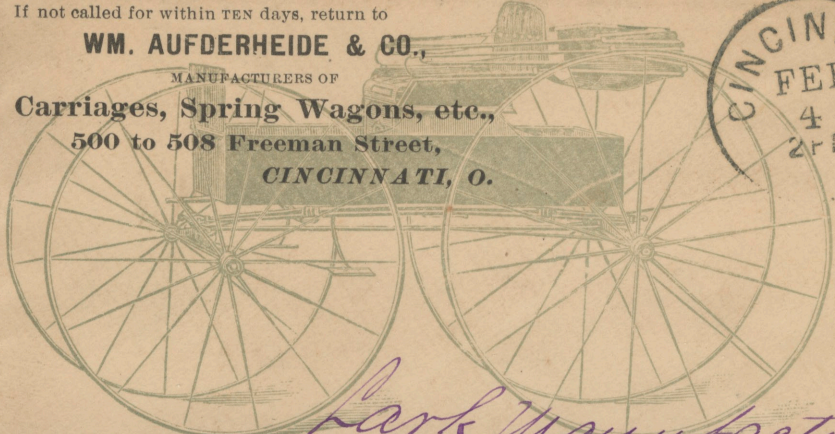 If not called for within TEN days, return to
WM. AUFDERHEIDE & CO.,
MANUFACTURERS OF
Carriages, Spring Wagons, etc.,
500 to 508 Freeman Street,
CINCINNATI, O.
CINCIN
FEB
4
2 P